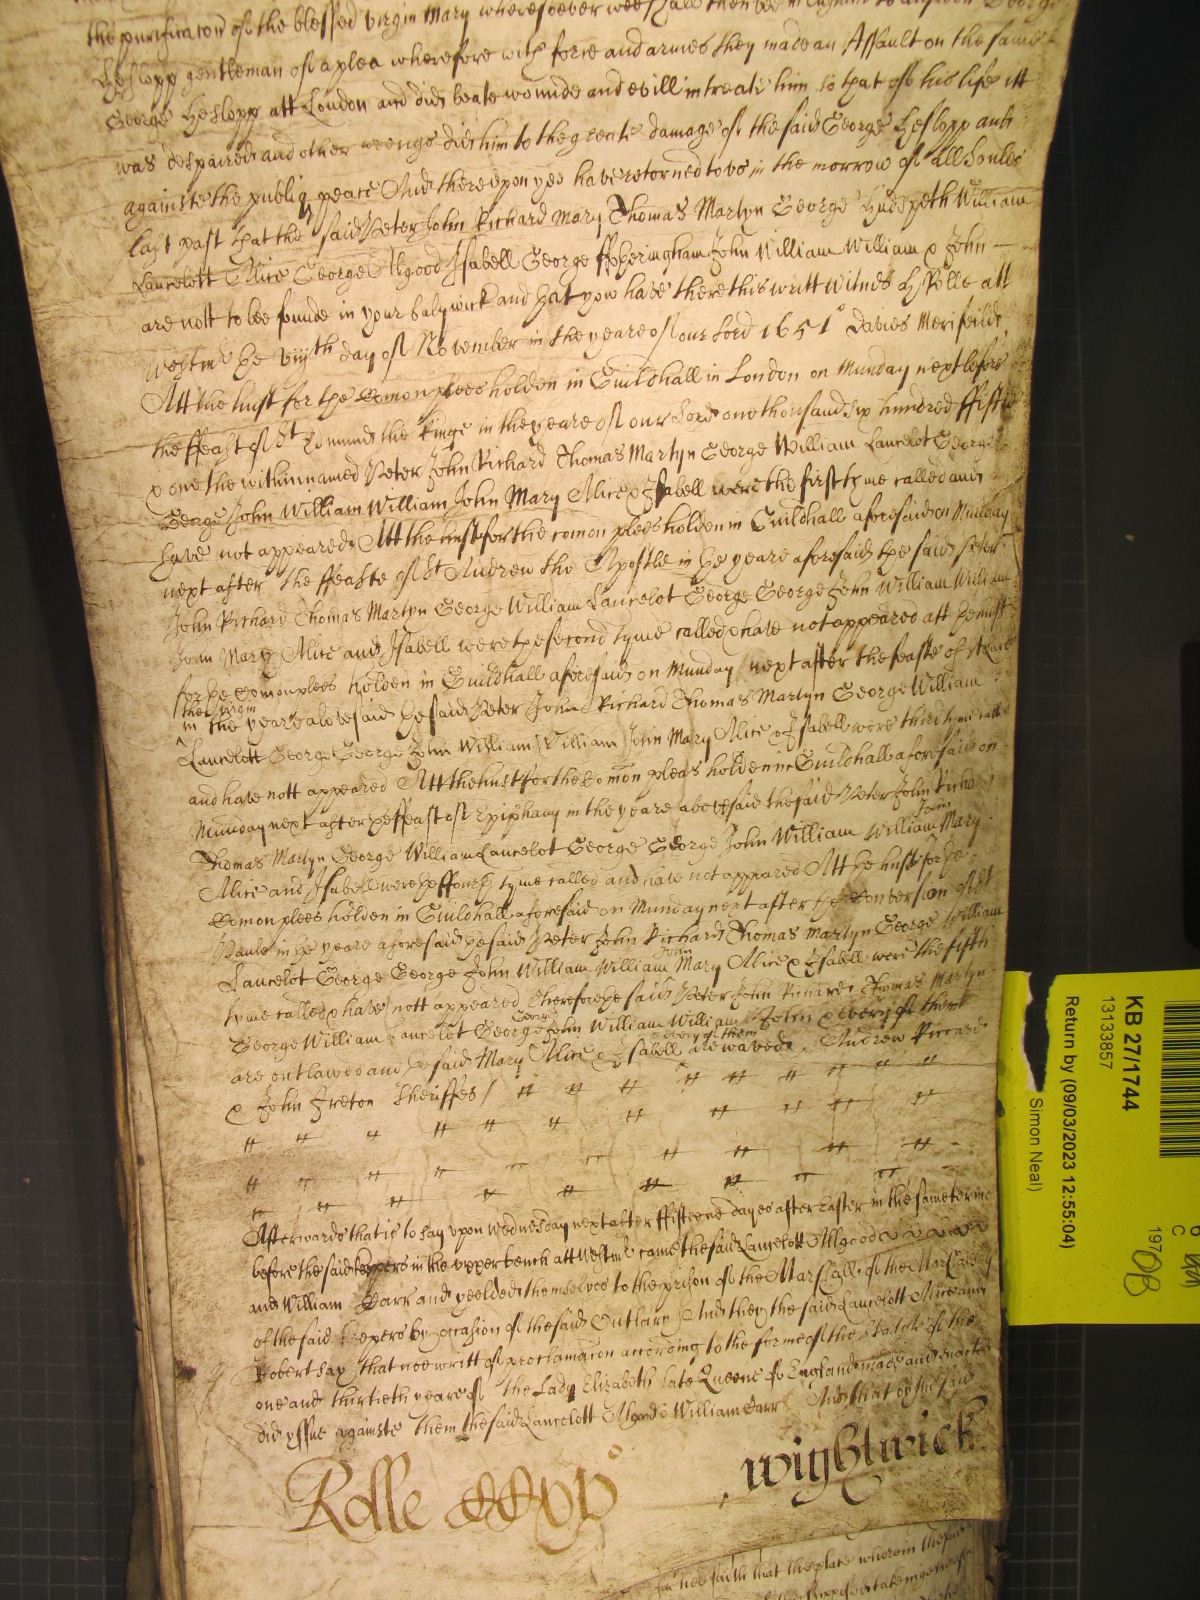 the purificacon of the blessed virgin Mary wheresoever wee shall then bee in England to answer George
Heslopp gentleman of a plea wherefore with force and armes they made an Assault on the same
George Heslopp att London and did beate wounde and evill intreate him so that of his life itt
was despaired and other wrongs did him to the greate damage of the said George Heslopp and
againste the publiq peace And thereupon yee have retorned to vs in the morrow of All Soules
last past that the said Peter John Richard Mary Thomas Martyn George Hudspeth William
Lancelott Alice George Algood Isabell George ffetheringham John William William & John
are nott to bee founde in your balywick and that yow have there this writt Witnes H Rolle att
Westmr the viijth day of November in the yeare of our Lord 1651 Davies Merifeild
Att the hust for the Comon plees holden in Guildhall in London on Munday next before
the ffeast of St Edmund the Kinge in the yeare of our Lord one thousand six hundred ffiftie
& one the withinnamed Peter John Richard Thomas Martyn George William Lancelot George
George John William William John Mary Alice & Isabell were the first tyme called and
have not appeared Att the hust for the comon plees holden in Guildhall aforesaid on Munday
next after the ffeaste of St Andrew the Apostle in the yeare aforesaid the said Peter
John Richard Thomas Martyn George William Lancelot George George John William William
John Mary Alice and Isabell were the second tyme called & have not appeared att the hust
for the Comon plees holden in Guildhall aforesaid on Munday next after the feaste of St Lucie
the virgin
in the yeare abovesaid the said Peter John Richard Thomas Martyn George William
Lancelott George George John William William John Mary Alice & Isabell were third tyme called
and have nott appeared Att the hust for the Comon pleas holden in Guildhall aforesaid on
Munday next after the ffeast of Epiphany in the yeare abovesaid the said Peter John Richard
Thomas Martyn George William Lancelot George George John William William John Mary
Alice and Isabell were the ffourth tyme called and have not appeared Att the hust for the
Comon plees holden in Guildhall aforesaid on Munday next after the Conversion of St
Paule in the yeare aforesaid the said Peter John Richard Thomas Martyn George William
Lancelot George George John William William John Mary Alice & Isabell were the fifth
tyme called & have nott appeared Therefore the said Peter John Richard Thomas Martyn
George William Lancelot George George John William William John & every of them
are outlawed and the said Mary Alice & Isabell & every of them are waved. Andrew Riccard
& John Ireton Sheriffes
Afterwards that is to say upon Wednesday next after ffifteene dayes after Easter in the same terme
before the said keepers in the upper bench att Westmr came the said Lancelott Allgood
and William Carr and yeelded themselves to the prison of the Marshall of the Marshalsey
of the said keepers by occasion of the said Outlary And they the said Lancelott Alice and
Robert say that noe writt of proclamacon according to the forme of the Statute of the
one and thirtieth yeare of the Lady Elizabeth late Queene of England made and enacted
did yssue againste them the said Lancelott Algood & William Carr And that by the said
Rolle
Wightwick
hee saith that the place wherein the said
KB 27/1744
13133857
Return by (09/03/2023 12:55:04)
Simon Neal)